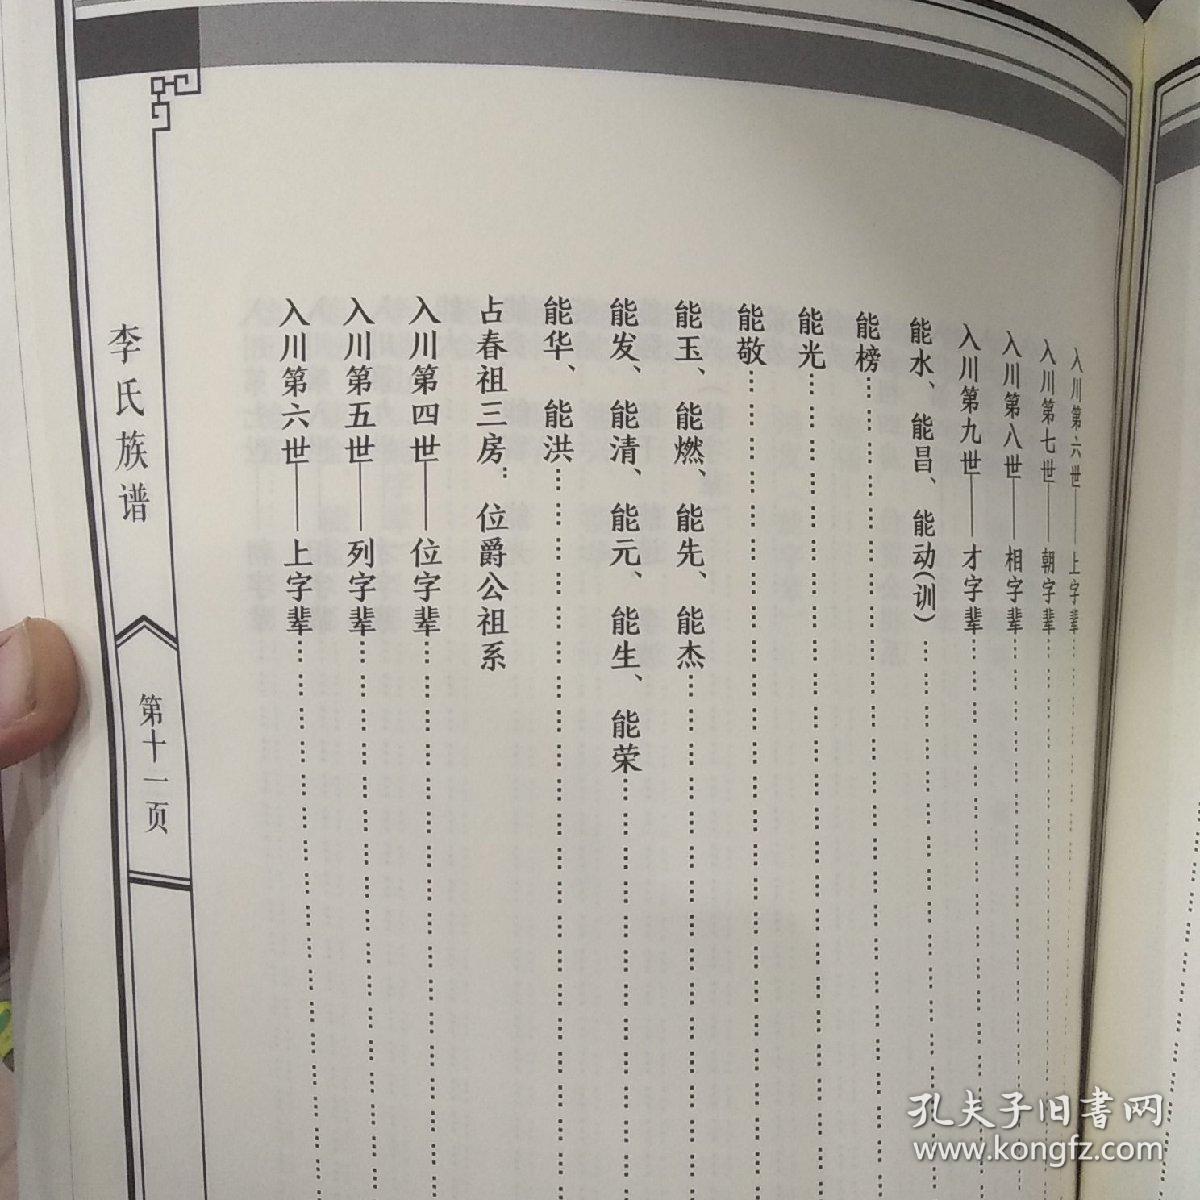 入川第六世——上字辈
入川第七世——朝字辈
入川第八世——相字辈
入川第九世——才字辈
能水、能昌、能动(训)
能榜
能光
能敬
能玉、能燃、能先、能杰
能发、能清、能元、能生、能荣
能华、能洪
占春祖三房：位爵公祖系
入川第四世——位字辈
入川第五世——列字辈
入川第六世——上字辈
李氏族谱
第十一页
孔夫子旧書网
www.kongfz.com